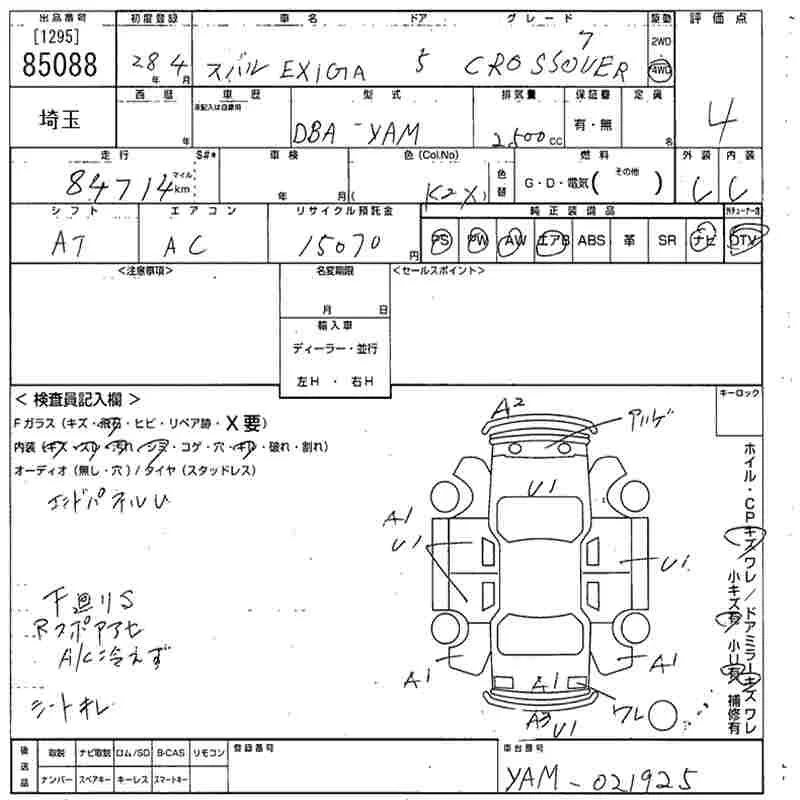 出品番号 初度登録 車名 ドア グレード 駆動 評価点
[1295]
85088
28年 4月
スバル EXIGA 5 CROSSOVER 7
2WD
4WD
4
埼玉
西暦 車歴 型式 排気量 保証書 定員
未記入は自家用
年
DBA-YAM
2,500cc
有・無
名
走行 S#* 車検 色(Col,No) 燃料 外装 内装
84714 マイル km
年 月(
K2X)
色替
G・D・電気( その他 )
C C
シフト エアコン リサイクル預託金 純正装備品
AT AC 15070円
PS PW AW エアB ABS 革 SR ナビ DTV
<注意事項> 名変期限 <セールスポイント>
月 日
輸入車
ディーラー・並行
左H ・ 右H
キーロック
< 検査員記入欄 >
Fガラス(キズ・飛石・ヒビ・リペア跡・X要)
内装(キズ・スレ・汚れ・シミ・コゲ・穴・キレ・破れ・割れ)
オーディオ(無し・穴)/タイヤ(スタッドレス)
エンドパネルU
下廻りS
Rスポアアセ
A/C冷えず
シートキレ
A2
U1
A1
U1
U1
A1
A1
A1
A3 U1
ワレ
ホイル・CPキズワレ/ドアミラーキズワレ
小キズ有 小U有 補修有
後送品
取説 ナビ取説 ロム/SD B-CAS リモコン
ナンバー スペアキー キーレス スマートキー
登録番号
車台番号
YAM-021925